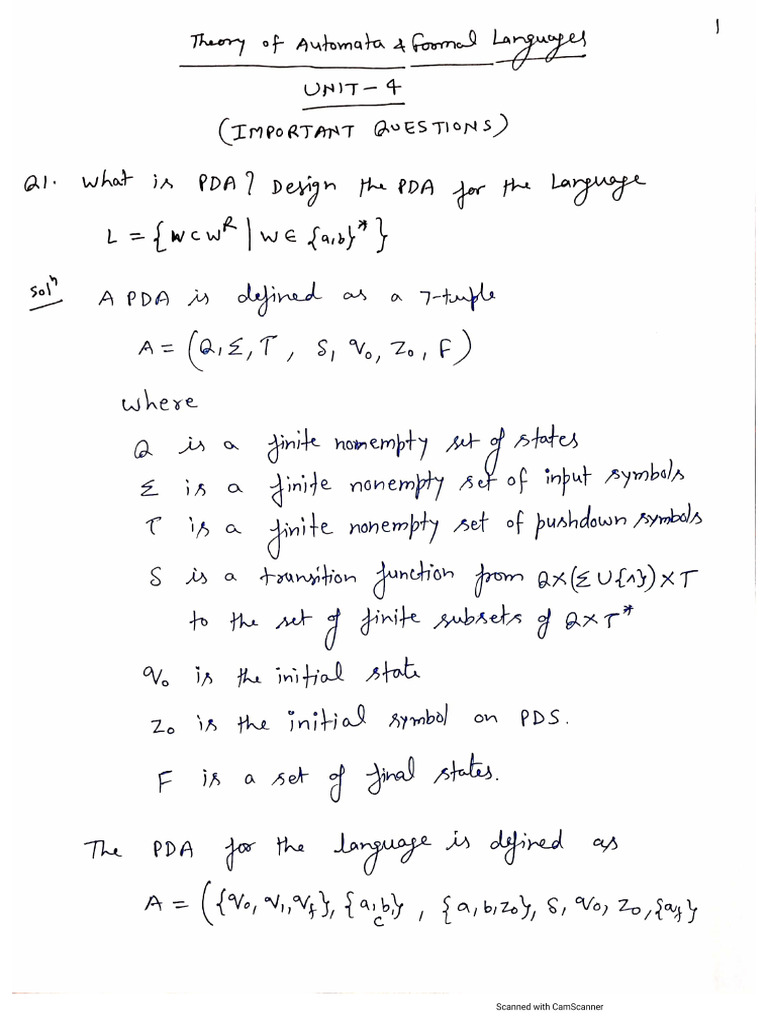 1
Theory of Automata & Formal Languages
UNIT-4
(IMPORTANT QUESTIONS)
Q1. What is PDA? Design the PDA for the Language
L = {wcwᴿ | w ∈ {a,b}*}
Solⁿ A PDA is defined as a 7-tuple
A = (Q, Σ, T, δ, q₀, Z₀, F)
where
Q is a finite nonempty set of states
Σ is a finite nonempty set of input symbols
T is a finite nonempty set of pushdown symbols
δ is a transition function from Q×(Σ∪{^})×T
to the set of finite subsets of Q×T*
q₀ is the initial state
Z₀ is the initial symbol on PDS.
F is a set of final states.
The PDA for the language is defined as
A = ({q₀, q₁, q_f}, {a, b, c}, {a, b, z₀}, δ, q₀, Z₀, {q_f}
Scanned with CamScanner